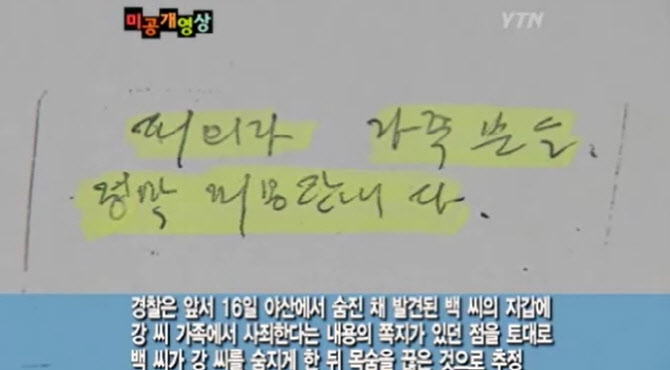 미공개영상
YTN
가족 분들.
정말 죄송합니다.
경찰은 앞서 16일 야산에서 숨진 채 발견된 백 씨의 지갑에
강 씨 가족에서 사죄한다는 내용의 쪽지가 있던 점을 토대로
백 씨가 강 씨를 숨지게 한 뒤 목숨을 끊은 것으로 추정